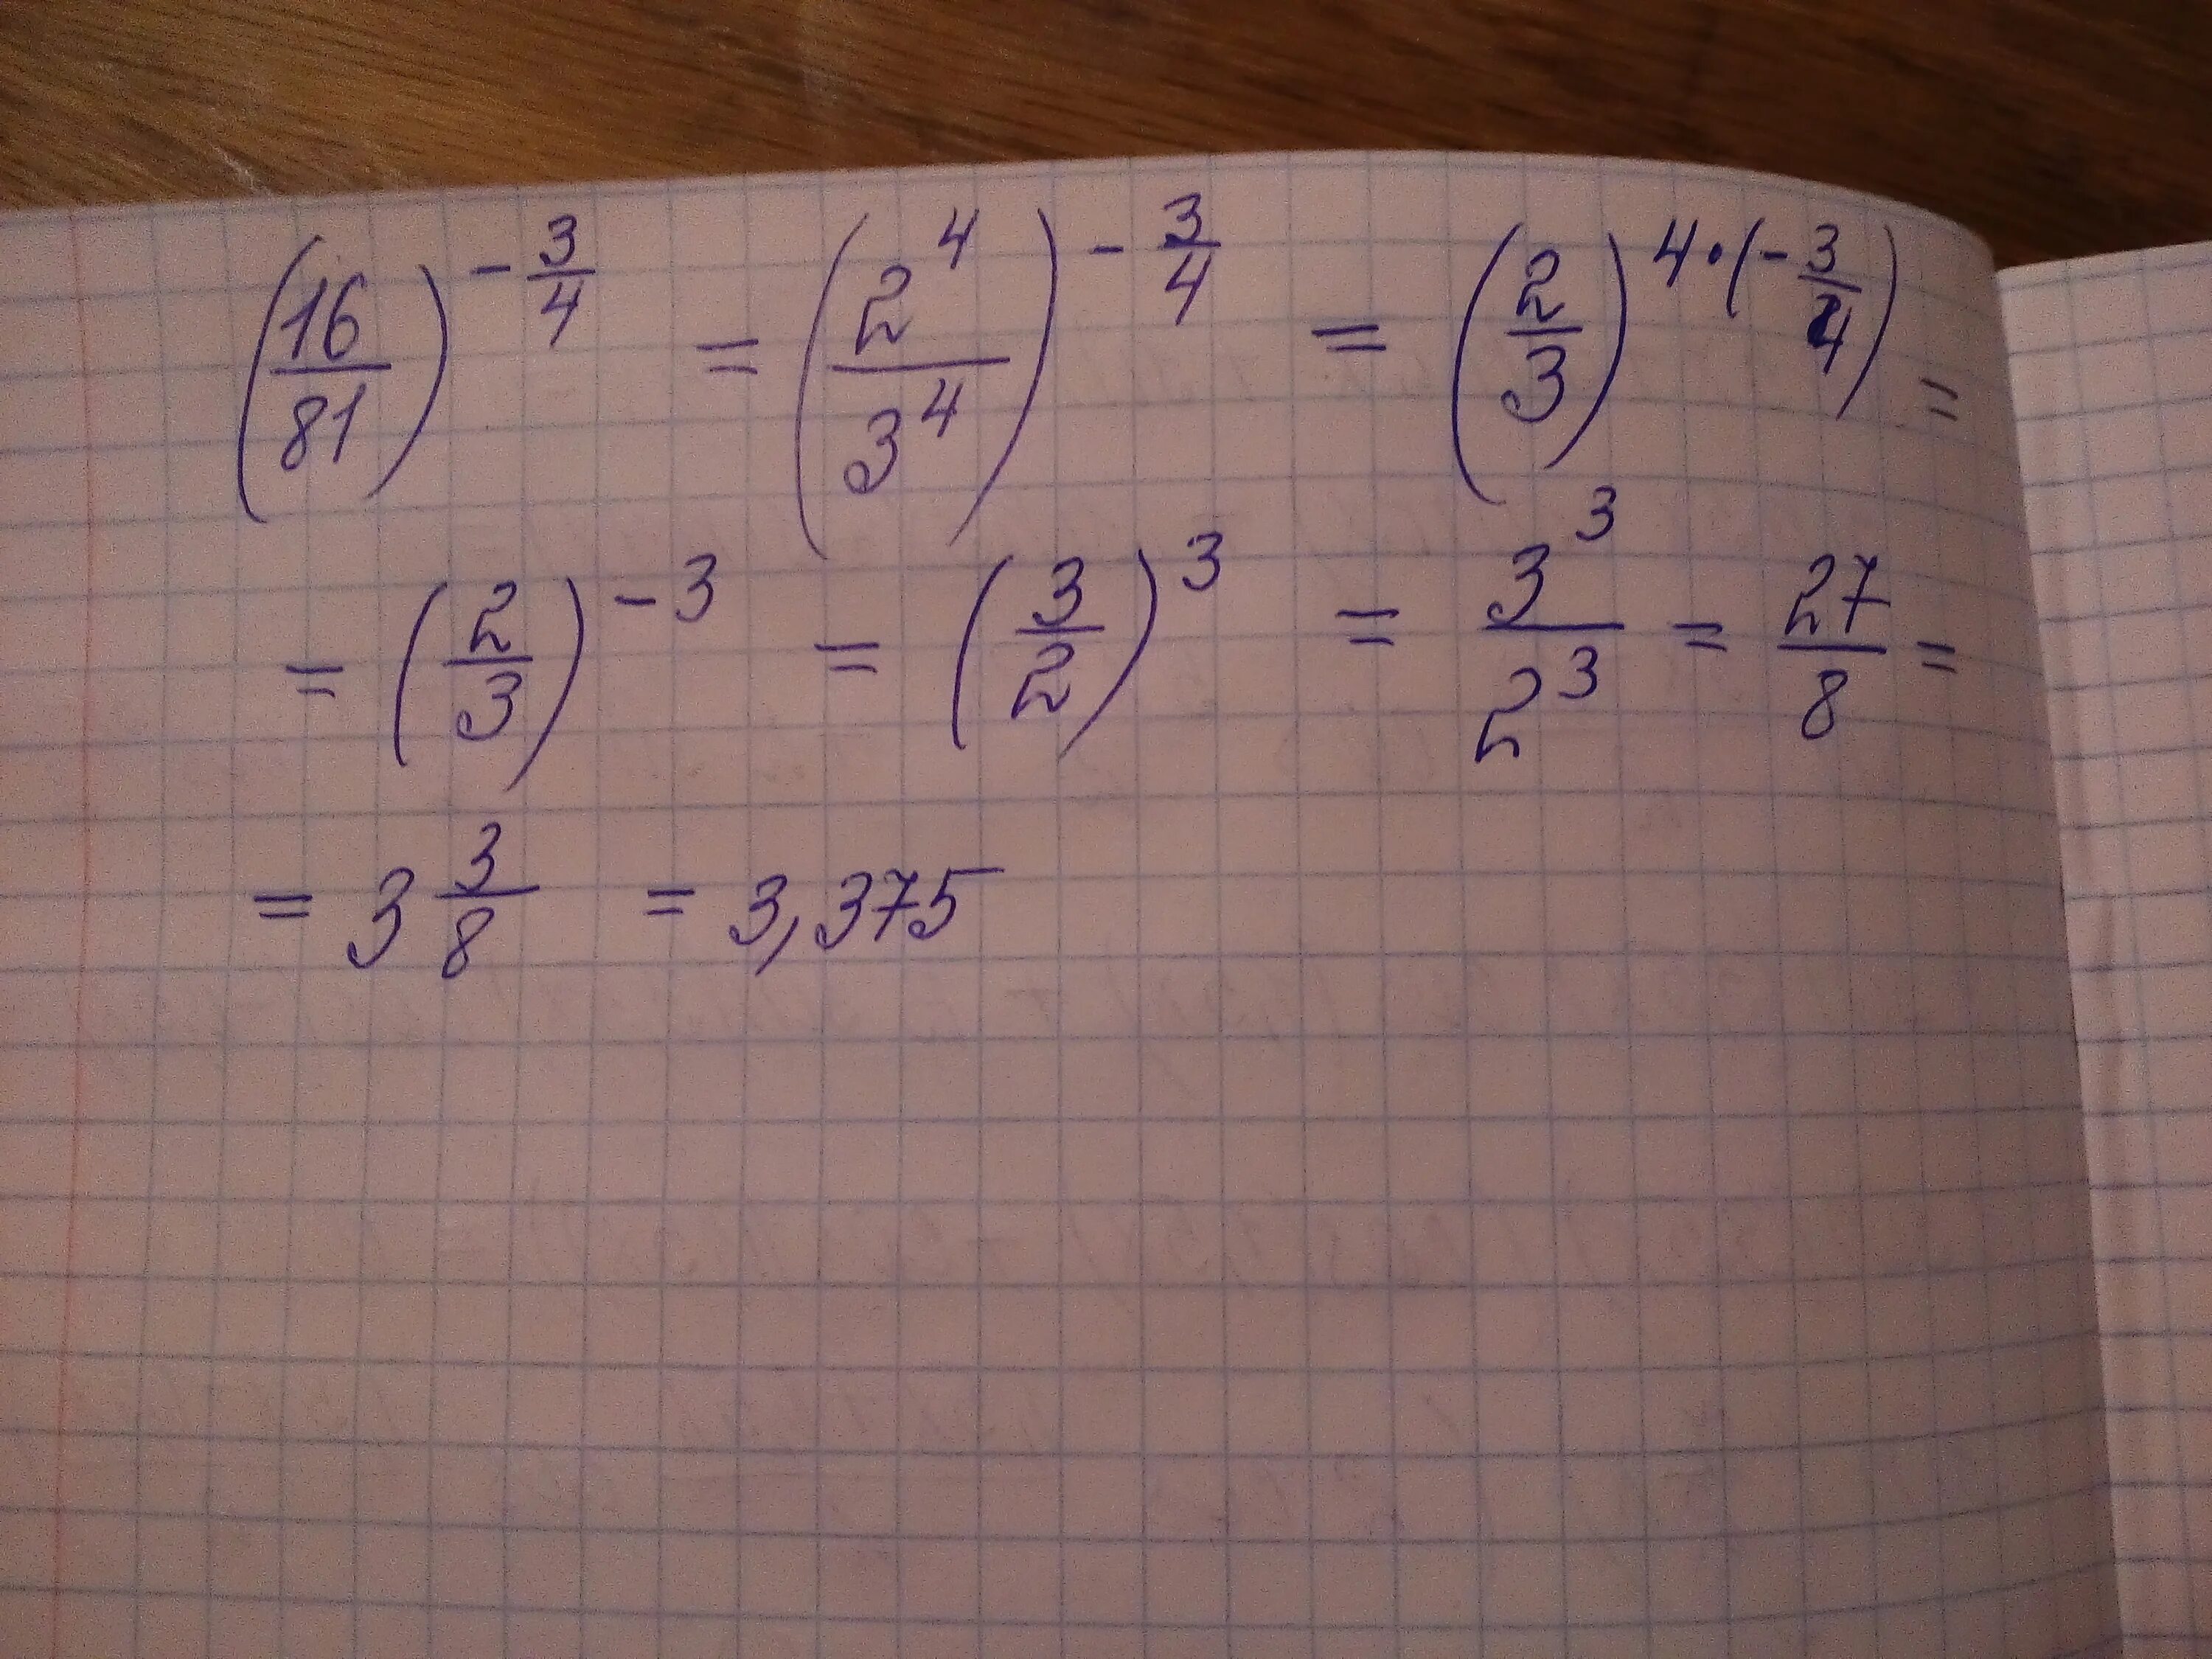 (16/81)^(-3/4) = (2^4/3^4)^(-3/4) = (2/3)^(4·(-3/4)) =
= (2/3)^(-3) = (3/2)^3 = 3^3/2^3 = 27/8 =
= 3 3/8 = 3,375